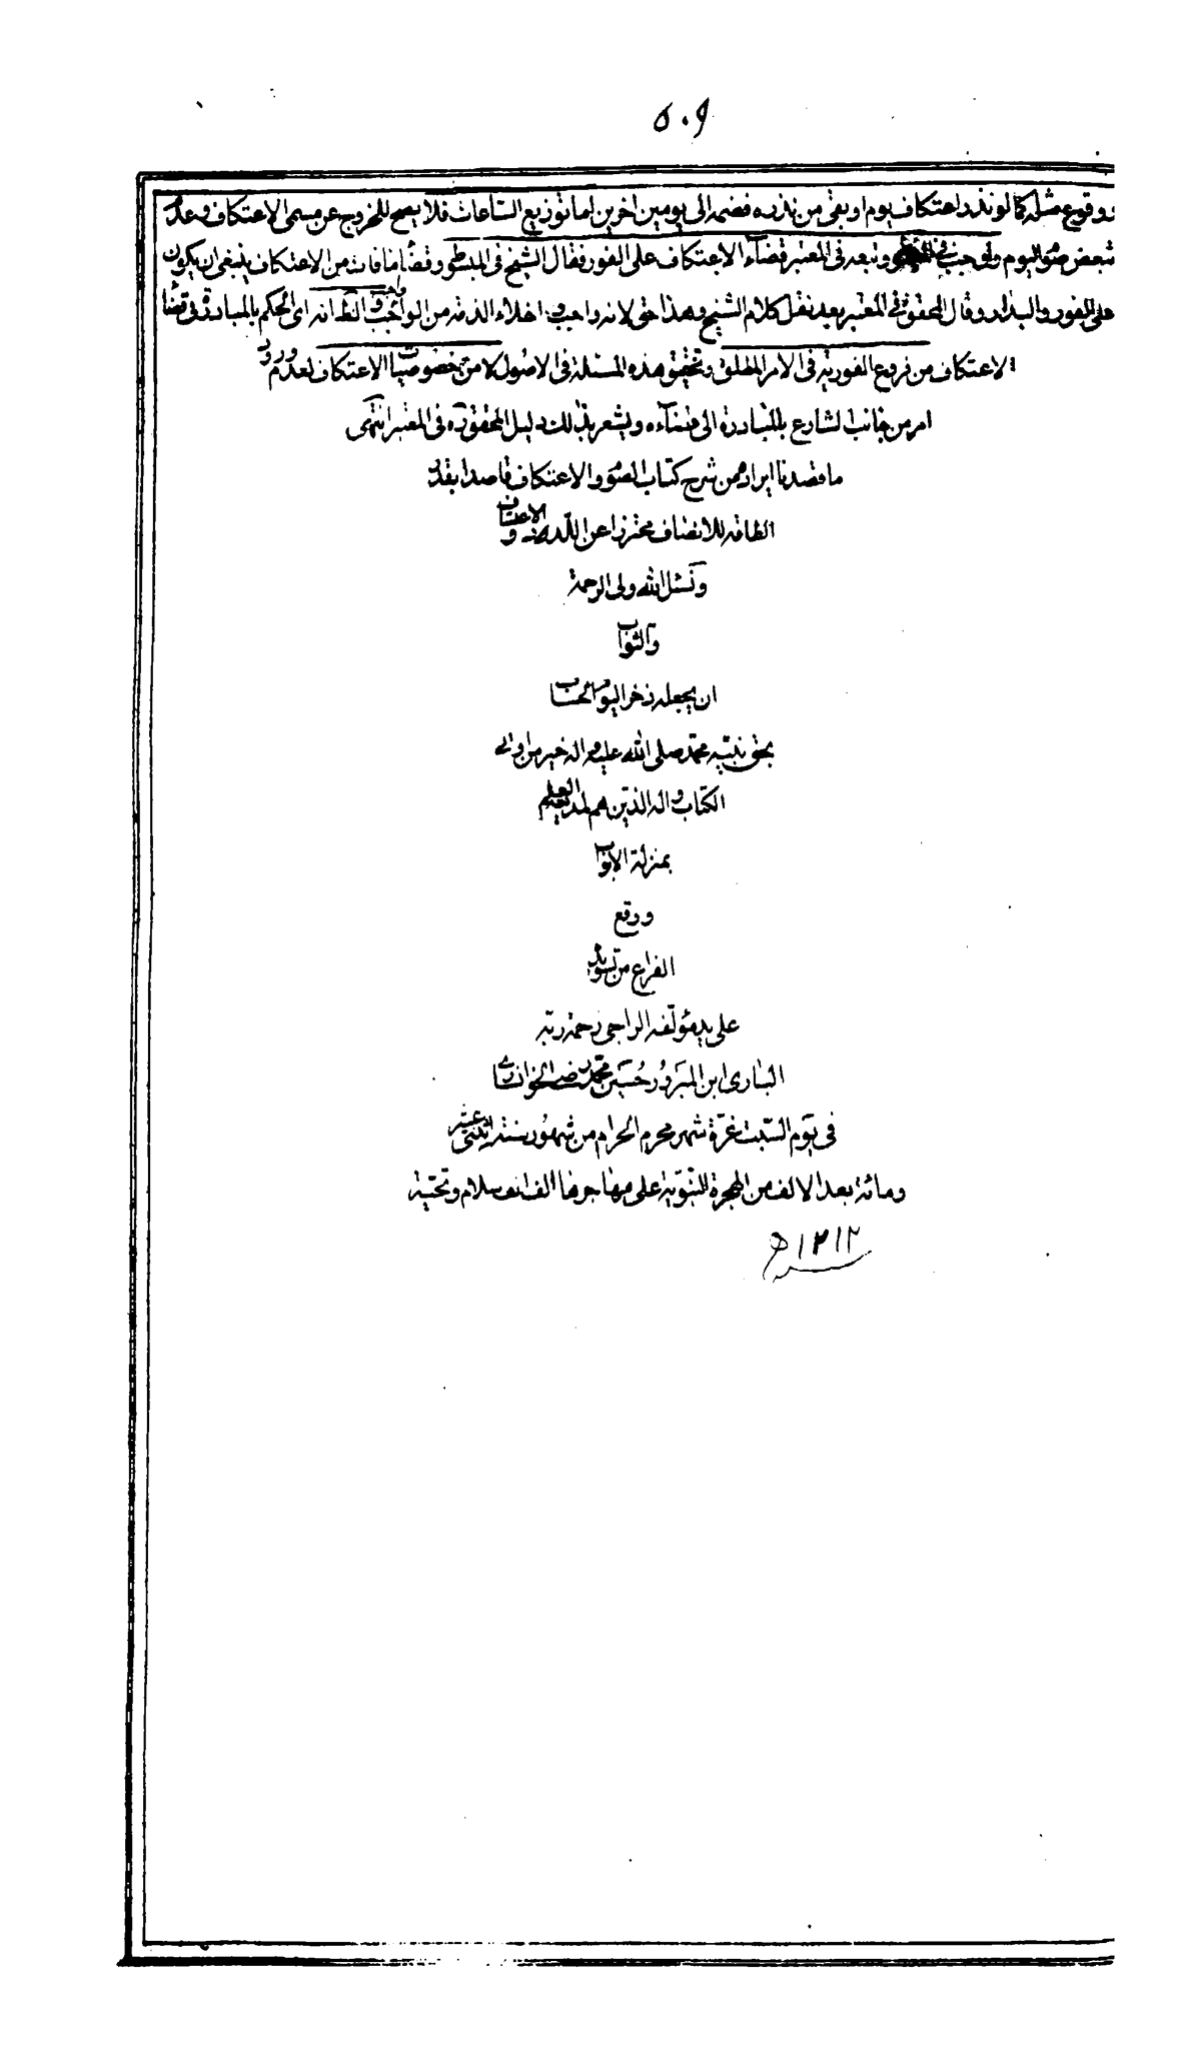 ٥٠٩
ووقوع مثله كما لو نذر اعتكاف يوم او بقى من نذره فضمه الى يومين اخرين اما توزيع الساعات فلا يصح للخروج عن مسمى الاعتكاف وعدم
تبعض صوم اليوم ولو وجب فى وتبعه فى المعتبر قضاء الاعتكاف على الفور فقال الشيخ فى المبسوط وقضا ما فات من الاعتكاف ينبغى ان يكون
على الفور والبدار وقال المحقق فى المعتبر بعد نقل كلام الشيخ وهذا حق لانه واجب و اخلاء الذمة من الواجب واجب والظ انه اى الحكم بالمبادرة فى قضا
الاعتكاف من فروع الفورية فى الامر المطلق وتحقيق هذه المسئلة فى الاصول لا من خصوصيات الاعتكاف لعدم ورود
امر من جانب الشارع بالمبادرة الى قضاءه ويشعر بذلك دليل المحقق ره فى المعتبر انتهى
ما قصدنا ايراده من شرح كتاب الصوم والاعتكاف قاصدا بقدر
الطاقه للانصاف محترزا عن اللدد والاعتساف
ونسئل الله ولى الرحمة
والثواب
ان يجعله ذخر اليوم الحساب
بحق نبيه محمد صلى الله عليه واله خير من اوتى
الكتاب واله الذين هم لمدينة العلم
بمنزلة الابواب
ووقع
الفراغ من تسويده
على يد مؤلفه الراجى رحمة ربه
البارى ابن المبرور حسين محمد رضى الخوانسارى
فى يوم السبت غرة شهر محرم الحرام من شهور سنة اثنتى عشر
ومائة بعد الالف من الهجرة النبوية على مهاجرها الف الف سلام وتحية
سنه ١٢١٢ ه